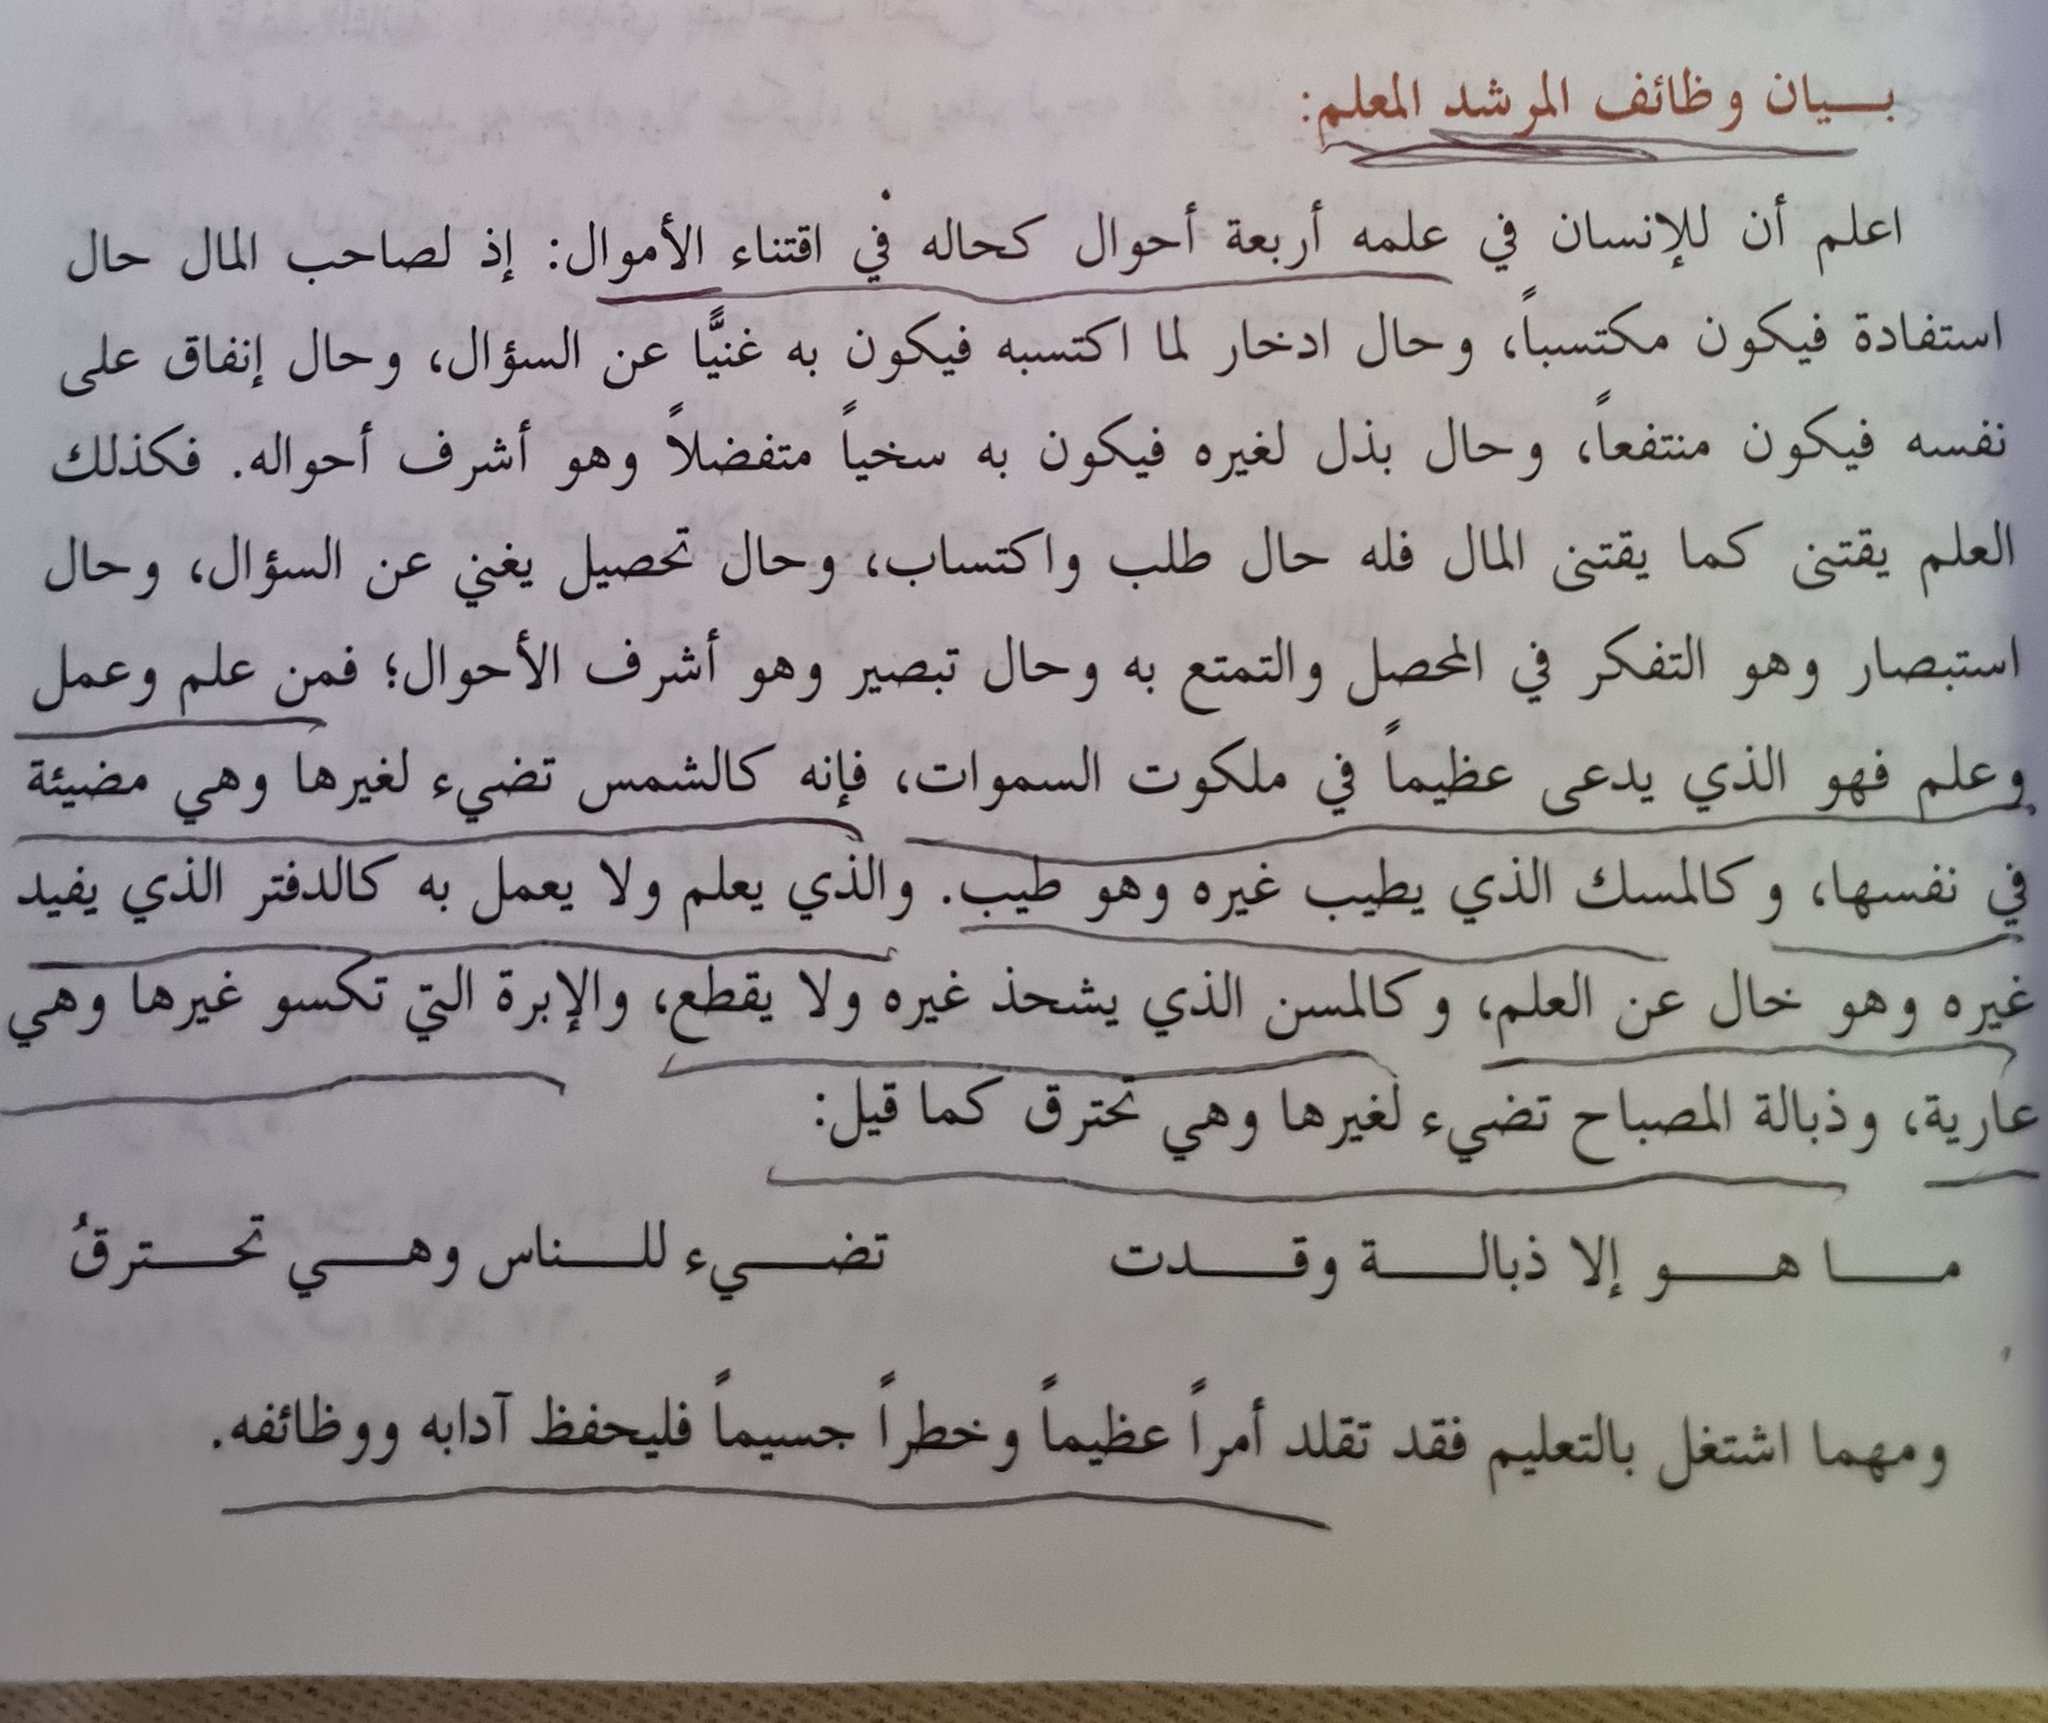 بيان وظائف المرشد المعلم:
اعلم أن للإنسان في علمه أربعة أحوال كحاله في اقتناء الأموال: إذ لصاحب المال حال
استفادة فيكون مكتسباً، وحال ادخار لما اكتسبه فيكون به غنيًّا عن السؤال، وحال إنفاق على
نفسه فيكون منتفعاً، وحال بذل لغيره فيكون به سخياً متفضلاً وهو أشرف أحواله. فكذلك
العلم يقتنى كما يقتنى المال فله حال طلب واكتساب، وحال تحصيل يغني عن السؤال، وحال
استبصار وهو التفكر في المحصل والتمتع به وحال تبصير وهو أشرف الأحوال؛ فمن علم وعمل
وعلم فهو الذي يدعى عظيماً في ملكوت السموات، فإنه كالشمس تضيء لغيرها وهي مضيئة
في نفسها، وكالمسك الذي يطيب غيره وهو طيب. والذي يعلم ولا يعمل به كالدفتر الذي يفيد
غيره وهو خال عن العلم، وكالمسن الذي يشحذ غيره ولا يقطع، والإبرة التي تكسو غيرها وهي
عارية، وذبالة المصباح تضيء لغيرها وهي تحترق كما قيل:
ما هو إلا ذبالة وقدت تضيء للناس وهي تحترقُ
ومهما اشتغل بالتعليم فقد تقلد أمراً عظيماً وخطراً جسيماً فليحفظ آدابه ووظائفه.